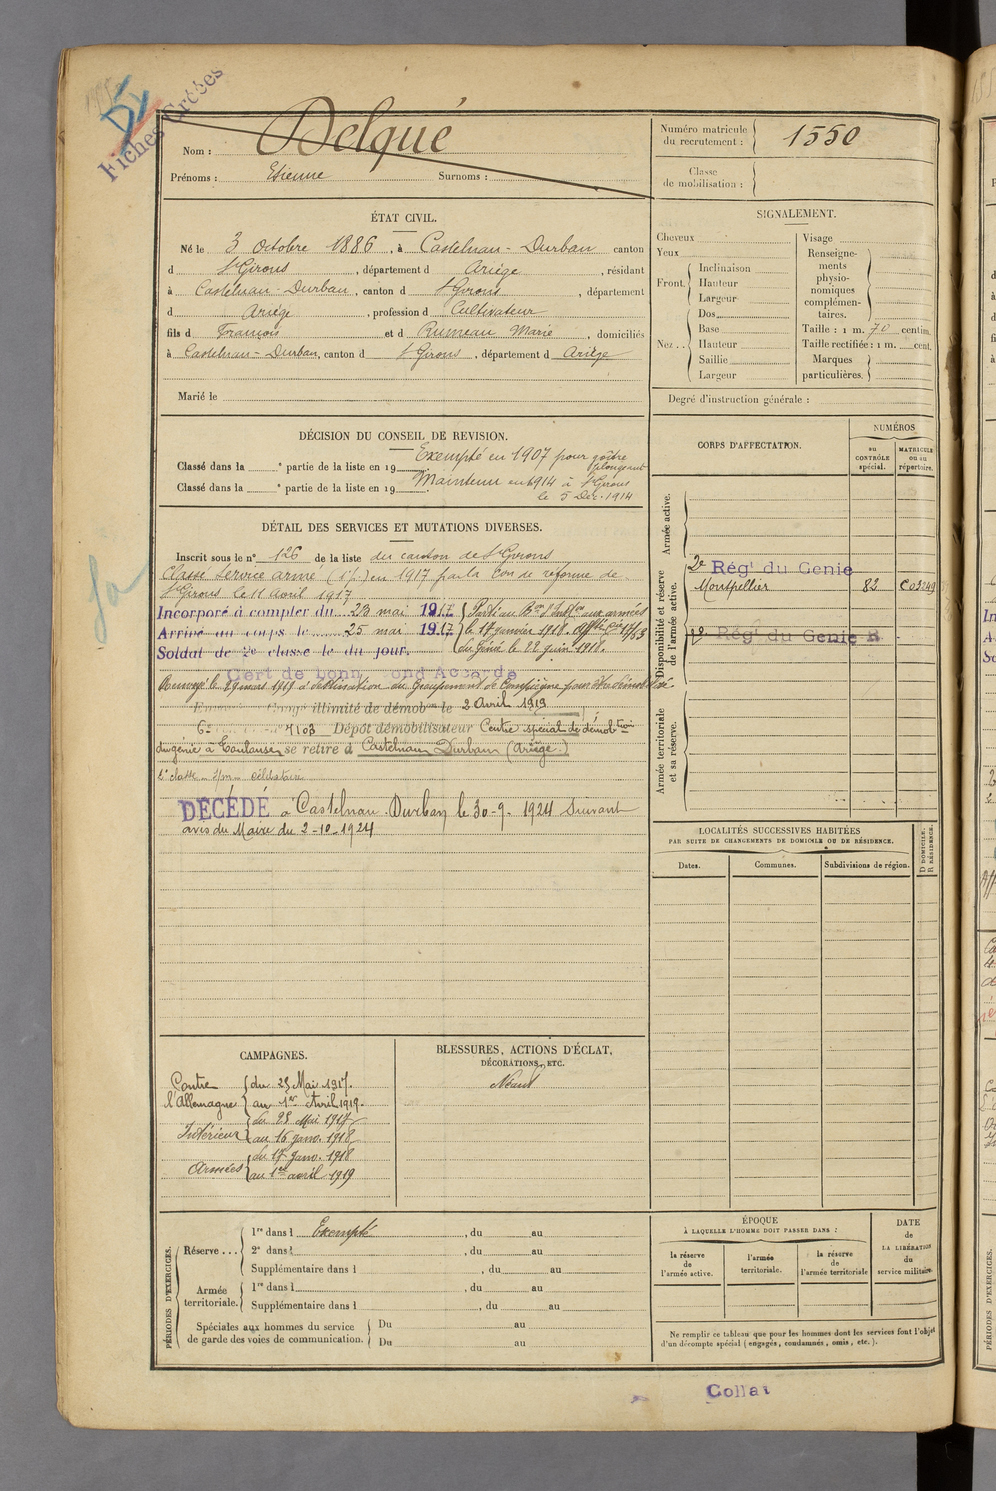 Fiches Créées
Nom : Delqué
Prénoms : Etienne Surnoms :
Numéro matricule
du recrutement : 1550
Classe
de mobilisation :
ÉTAT CIVIL.
Né le 3 Octobre 1886, à Castelnau-Durban canton
d St Girons, département d Ariège, résidant
à Castelnau-Durban, canton d St Girons, département
d Ariège, profession d Cultivateur
fils d François et d Rumeau Marie, domiciliés
à Castelnau-Durban, canton d St Girons, département d Ariège
Marié le
SIGNALEMENT.
Cheveux
Yeux
Front. Inclinaison
Hauteur
Largeur
Nez.. Dos
Base
Hauteur
Saillie
Largeur
Visage
Renseigne-
ments
physio-
nomiques
complémen-
taires.
Taille : 1 m. 70 centim.
Taille rectifiée : 1 m. cent.
Marques
particulières.
Degré d'instruction générale :
DÉCISION DU CONSEIL DE REVISION.
Classé dans la e partie de la liste en 19 . Exempté en 1907 pour goitre
plongeant
Classé dans la e partie de la liste en 19 . Maintenu en 1914 à St Girons
le 5 Déc. 1914
CORPS D'AFFECTATION.
NUMÉROS
au
CONTRÔLE
spécial.
MATRICULE
ou au
répertoire.
Armée active.
Disponibilité et réserve
de l'armée active.
2e Régt du Genie
Montpellier 82 C03249
Régt du Genie R
Armée territoriale
et sa réserve.
DÉTAIL DES SERVICES ET MUTATIONS DIVERSES.
Inscrit sous le n° 126 de la liste du canton de St Girons
Classé Service armé en 1917 par la Con de réforme de
St Girons le 11 Avril 1917
Incorporé à compter du 23 mai 1917 Parti au aux armées
Arrivé au corps le 25 mai 1917 le 17 janvier 1918.
Soldat de 2e classe le du jour. du Génie le 22 juin 1918.
Cert de bonn ond Accordé
Renvoyé le 29 mars 1919 à destination du Groupement de Compiègne pour
illimité de démobon le 2 Avril 1919
7103 Dépôt démobilisateur Centre spécial de démobtion
du génie à Toulouse, se retire à Castelnau Durban (Ariège)
célibataire
DÉCÉDÉ à Castelnau-Durban le 30-9-1924 Suivant
avis du Maire du 2-10-1924
LOCALITÉS SUCCESSIVES HABITÉES
PAR SUITE DE CHANGEMENTS DE DOMICILE OU DE RÉSIDENCE.
Dates. Communes. Subdivisions de région. D DOMICILE.
R RÉSIDENCE.
CAMPAGNES.
Contre
l'Allemagne du 23 Mai 1917.
au 1er Avril 1919.
Intérieur du 23 Mai 1917
au 16 janv. 1918
Armées du 17 janv. 1918
au 1er avril 1919
BLESSURES, ACTIONS D'ÉCLAT,
DÉCORATIONS, ETC.
Néant
PÉRIODES D'EXERCICES.
Réserve... 1re dans l Exempté, du au
2e dans l , du au
Supplémentaire dans l , du au
Armée
territoriale. 1re dans l , du au
Supplémentaire dans l , du au
Spéciales aux hommes du service
de garde des voies de communication. Du au
Du au
ÉPOQUE
À LAQUELLE L'HOMME DOIT PASSER DANS :
la réserve
de
l'armée active.
l'armée
territoriale.
la réserve
de
l'armée territoriale
DATE
de
LA LIBÉRATION
du
service militaire.
Ne remplir ce tableau que pour les hommes dont les services font l'objet
d'un décompte spécial (engagés, condamnés, omis, etc.).